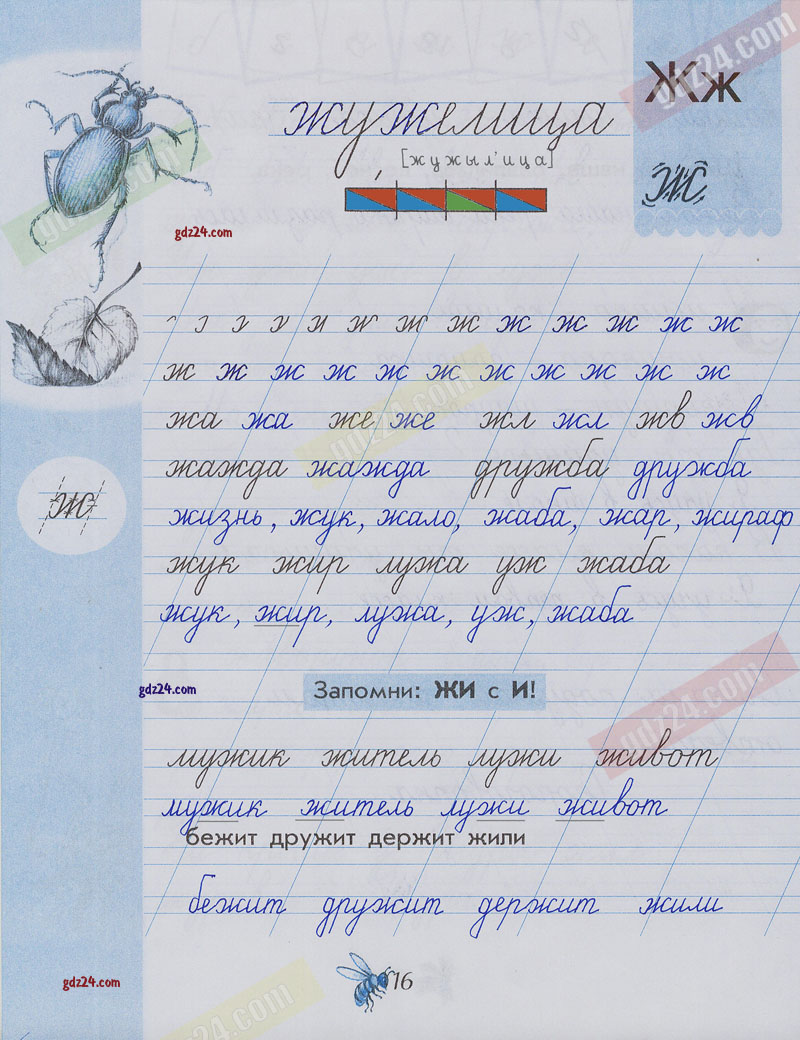 Жж
жужелица
[жужыл'ица]
Ж
gdz24.com
ж ж ж ж ж ж ж
ж ж ж ж ж ж ж ж ж ж ж
жа жа же же жл жл жв жв
жажда жажда дружба дружба
ж
жизнь, жук, жало, жаба, жар, жираф
жук жир лужа уж жаба
жук, жир, лужа, уж, жаба
gdz24.com
Запомни: ЖИ с И!
мужик житель лужи живот
мужик житель лужи живот
бежит дружит держит жили
бежит дружит держит жили
gdz24.com
16